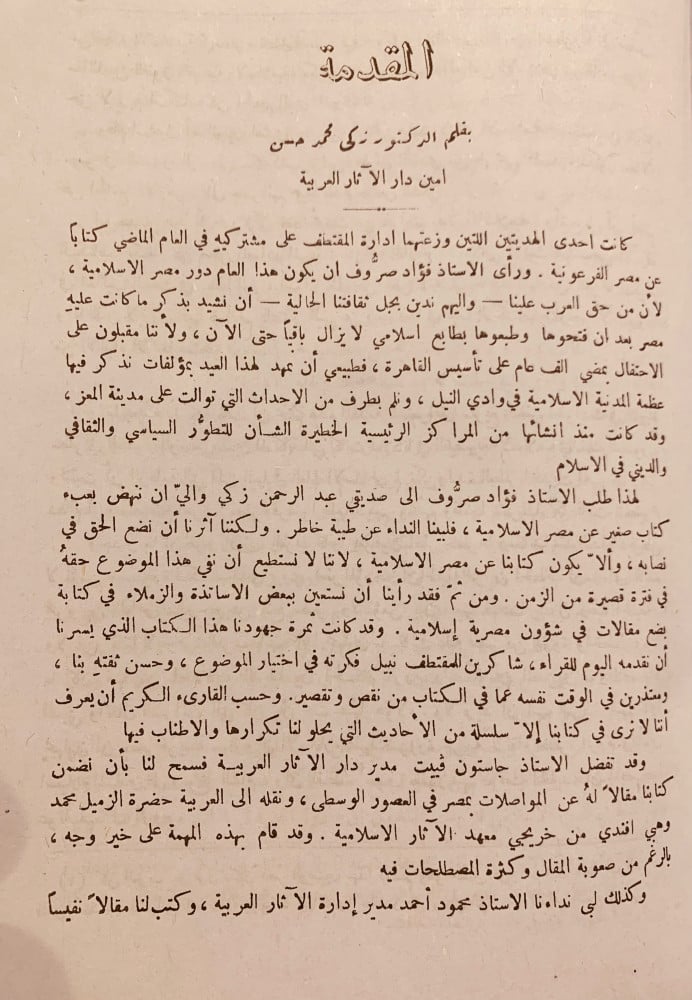 المقدمة
بقلم الدكتور زكي محمد حسن
امين دار الآثار العربية
كانت احدى الهديتين اللتين وزعتهما ادارة المقتطف على مشتركيهِ في العام الماضي كتاباً
عن مصر الفرعونية . ورأى الاستاذ فؤاد صرُّوف ان يكون هذا العام دور مصر الاسلامية ،
لأن من حق العرب علينا — واليهم ندين بجل ثقافتنا الحالية — أن نشيد بذكر ما كانت عليهِ
مصر بعد ان فتحوها وطبعوها بطابع اسلامي لا يزال باقياً حتى الآن ، ولأننا مقبلون على
الاحتفال بمضي الف عام على تأسيس القاهرة ، فطبيعي أن نمهد لهذا العيد بمؤلفات نذكر فيها
عظمة المدنية الاسلامية في وادي النيل ، ونلم بطرف من الاحداث التي توالت على مدينة المعز ،
وقد كانت منذ انشائها من المراكز الرئيسية الخطيرة الشأن للتطوُّر السياسي والثقافي
والديني في الاسلام
لهذا طلب الاستاذ فؤاد صرُّوف الى صديقي عبد الرحمن زكي واليّ ان ننهض بعبء
كتاب صغير عن مصر الاسلامية ، فلبينا النداء عن طيبة خاطر . ولكننا آثرنا أن نضع الحق في
نصابه ، وألاّ يكون كتابنا عن مصر الاسلامية ، لاننا لا نستطيع أن نفي هذا الموضوع حقهُ
في فترة قصيرة من الزمن . ومن ثمّ فقد رأينا أن نستعين ببعض الاساتذة والزملاء في كتابة
بضع مقالات في شؤون مصرية إسلامية . وقد كانت ثمرة جهودنا هذا الكتاب الذي يسرنا
أن نقدمه اليوم للقراء ، شاكرين للمقتطف نبيل فكرته في اختيار الموضوع ، وحسن ثقتهِ بنا ،
ومعتذرين في الوقت نفسه عما في الكتاب من نقص وتقصير. وحسب القارىء الكريم أن يعرف
أننا لا نرى في كتابنا إلاّ سلسلة من الأحاديث التي يحلو لنا تكرارها والاطناب فيها
وقد تفضل الاستاذ جاستون ڤييت مدير دار الآثار العربية فسمح لنا بأن نضمن
كتابنا مقالاً لهُ عن المواصلات بمصر في العصور الوسطى ، ونقله الى العربية حضرة الزميل محمد
وهبي افندي من خريجي معهد الآثار الاسلامية . وقد قام بهذه المهمة على خير وجه ،
بالرغم من صعوبة المقال وكثرة المصطلحات فيه
وكذلك لبى نداءنا الاستاذ محمود أحمد مدير إدارة الآثار العربية ، وكتب لنا مقالاً نفيساً